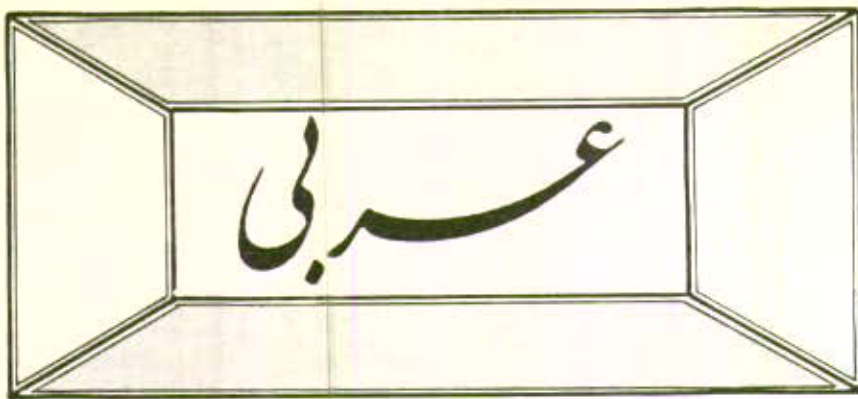 عربی